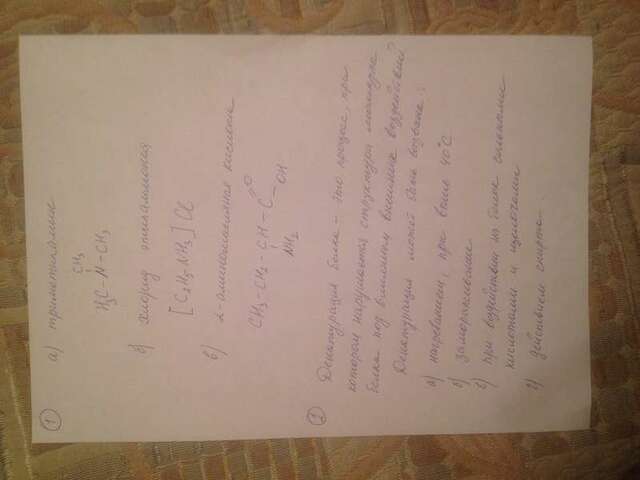 1
а) триметиламин
CH3
H3C-N-CH3
б) хлорид этиламмония
[C2H5-NH3]Cl
в) 2-аминомасляная кислота
CH3-CH2-CH-C
O
OH
NH2
2
Денатурация белка - это процесс, при
котором нарушается структура молекулы
белка под влиянием внешних воздействий
Денатурация может быть вызвана:
а) нагреванием, при выше 40°C
б) замораживание
в) при воздействии на белок сильными
кислотами и щелочами
г) действием спирта.